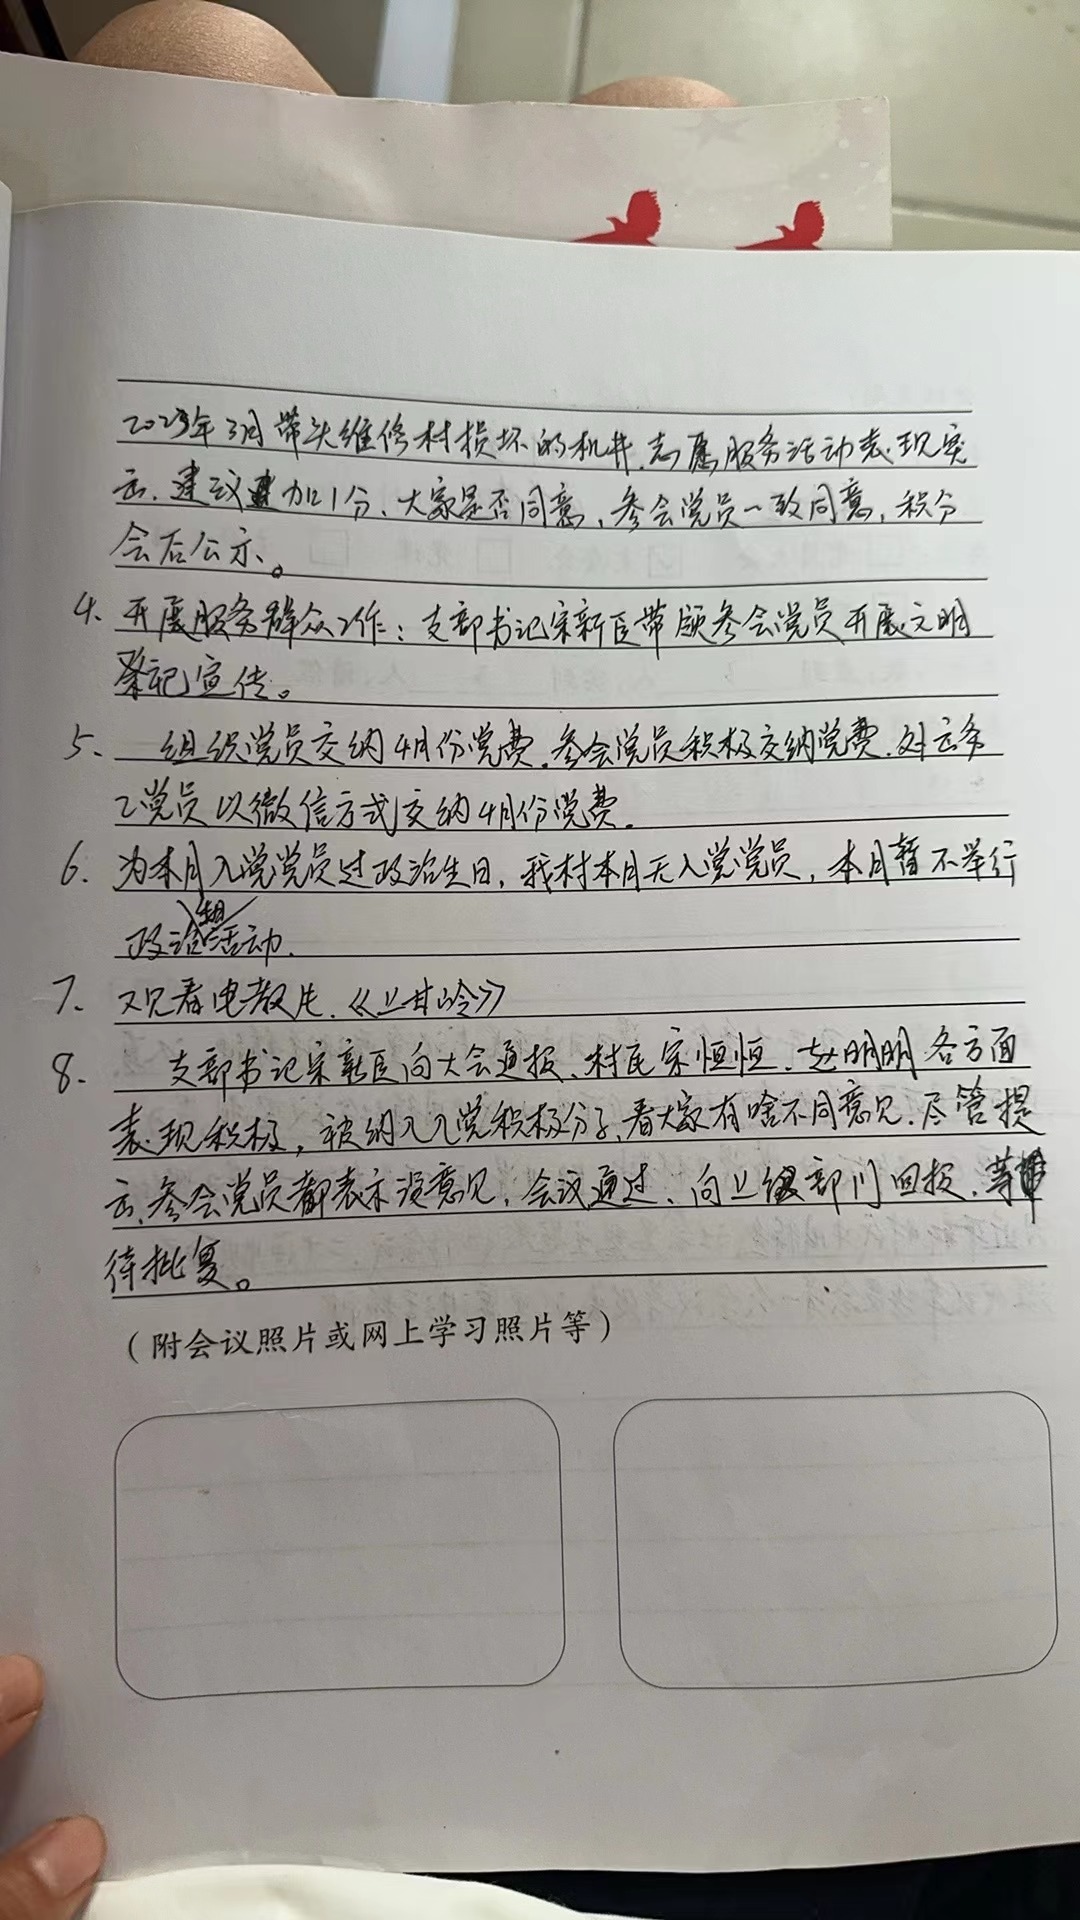 2023年3月带头维修村损坏的机井,志愿服务活动表现突
出,建议加1分,大家是否同意,参会党员一致同意,积分
会后公示。
4、开展服务群众工作:支部书记宋新臣带领参会党员开展文明
祭祀宣传。
5、组织党员交纳4月份党费,参会党员积极交纳党费,对云务
工党员以微信方式交纳4月份党费。
6、为本月入党党员过政治生日,我村本月无入党党员,本月暂不举行
政治活动.
7、观看电教片.《上甘岭》
8、支部书记宋新臣向大会通报、村民宋恒恒、赵明明各方面
表现积极,被纳入入党积极分子,看大家有啥不同意见,尽管提
出,参会党员都表示没意见,会议通过、向上级部门回报,等
待批复。
(附会议照片或网上学习照片等)